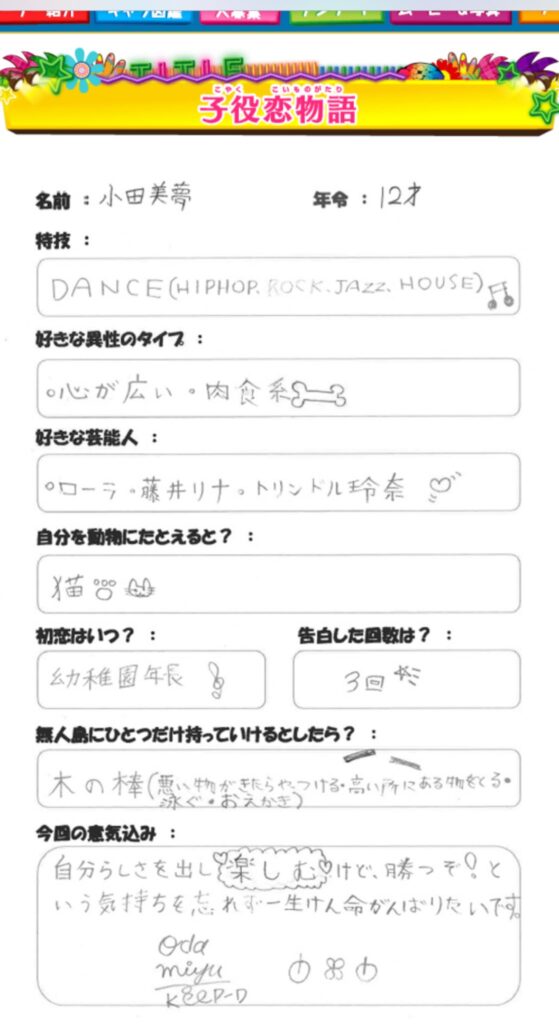 TITLE
こやく こいものがたり
子役恋物語
名前 : 小田美夢 年令 : 12才
特技 :
DANCE(HIPHOP、ROCK、JAZZ、HOUSE)
好きな異性のタイプ :
◦心が広い ◦肉食系
好きな芸能人 :
◦ローラ ◦藤井リナ ◦トリンドル玲奈
自分を動物にたとえると? :
猫
初恋はいつ? : 告白した回数は? :
幼稚園年長 3回
無人島にひとつだけ持っていけるとしたら? :
木の棒(悪い物がきたらやっつける・高い所にある物をとる・
泳ぐ・おえかき)
今回の意気込み :
自分らしさを出し楽しむけど、勝つぞ!と
いう気持ちを忘れず一生けん命がんばりたいです。
Oda
miyu